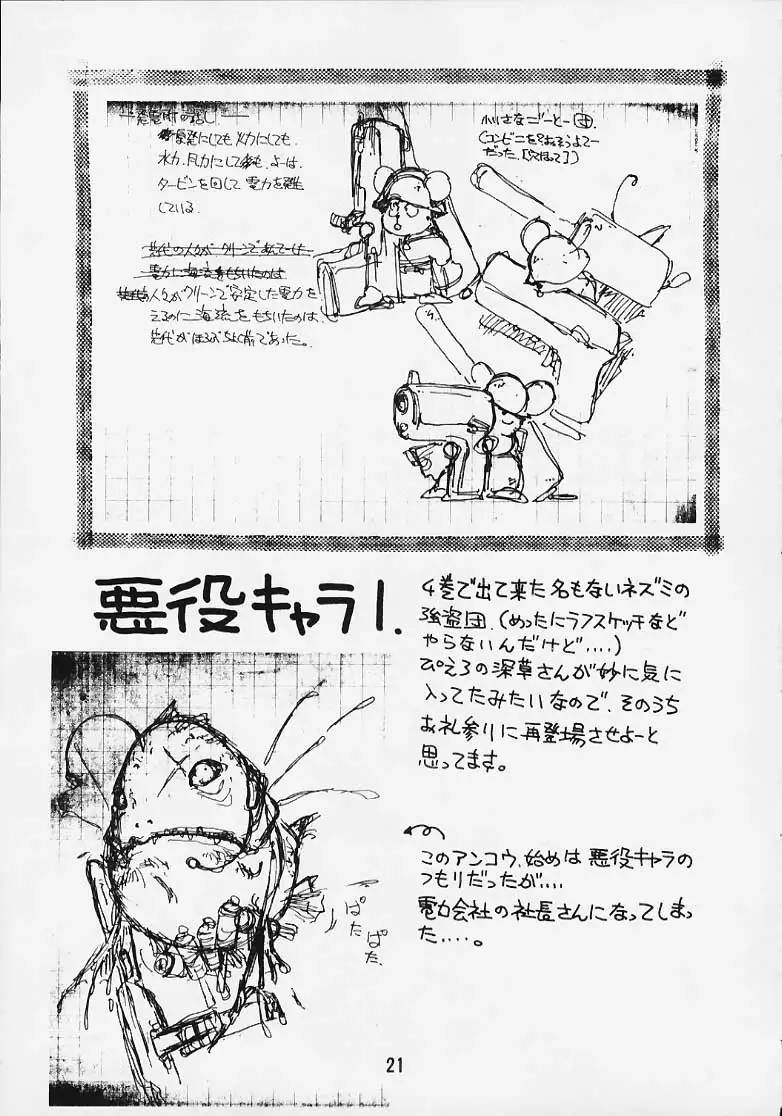 発電所の話し
原発にしても火力にしても、
水力、風力にしても、よーは、
タービンを回して電力を発生
している。
人々がクリーンで安定した電力を
えるのに海流をもちいたのは、
先代がほろぶちょく前であった。
小さなごーとー団。
(コンビニをおそうよてー
だった。[穴ほって])
悪役キャラ1.
4巻で出て来た名もないネズミの
強盗団。(めったにラフスケッチなど
やらないんだけど‥‥)
ぴえろの深草さんが妙に気に
入ってたみたいなので、そのうち
お礼参りに再登場させよーと
思ってます。
このアンコウ、始めは悪役キャラの
つもりだったが‥‥
電力会社の社長さんになってしまっ
た‥‥。
ぱた
ぱた
21